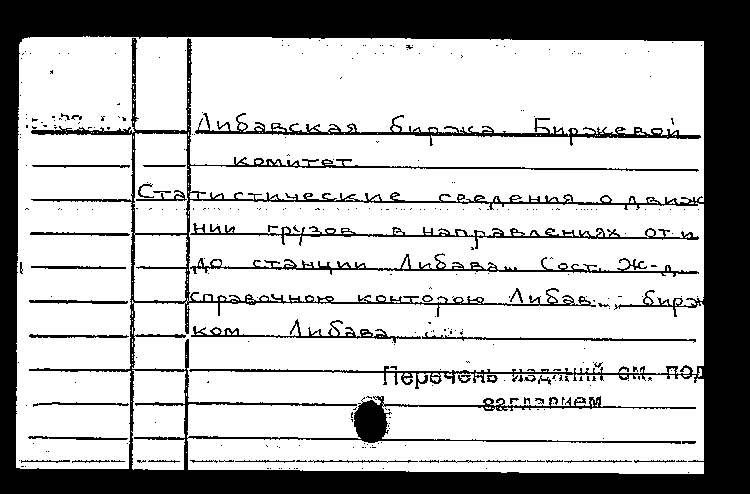 Либавская биржа. Биржевой
комитет.
Статистические сведения о движ
нии грузов в направлениях от и
до станции Либава... Сост. Ж-д.
справочною конторою Либав... бирж
ком Либава,
Перечень изданий см. под
заглавием